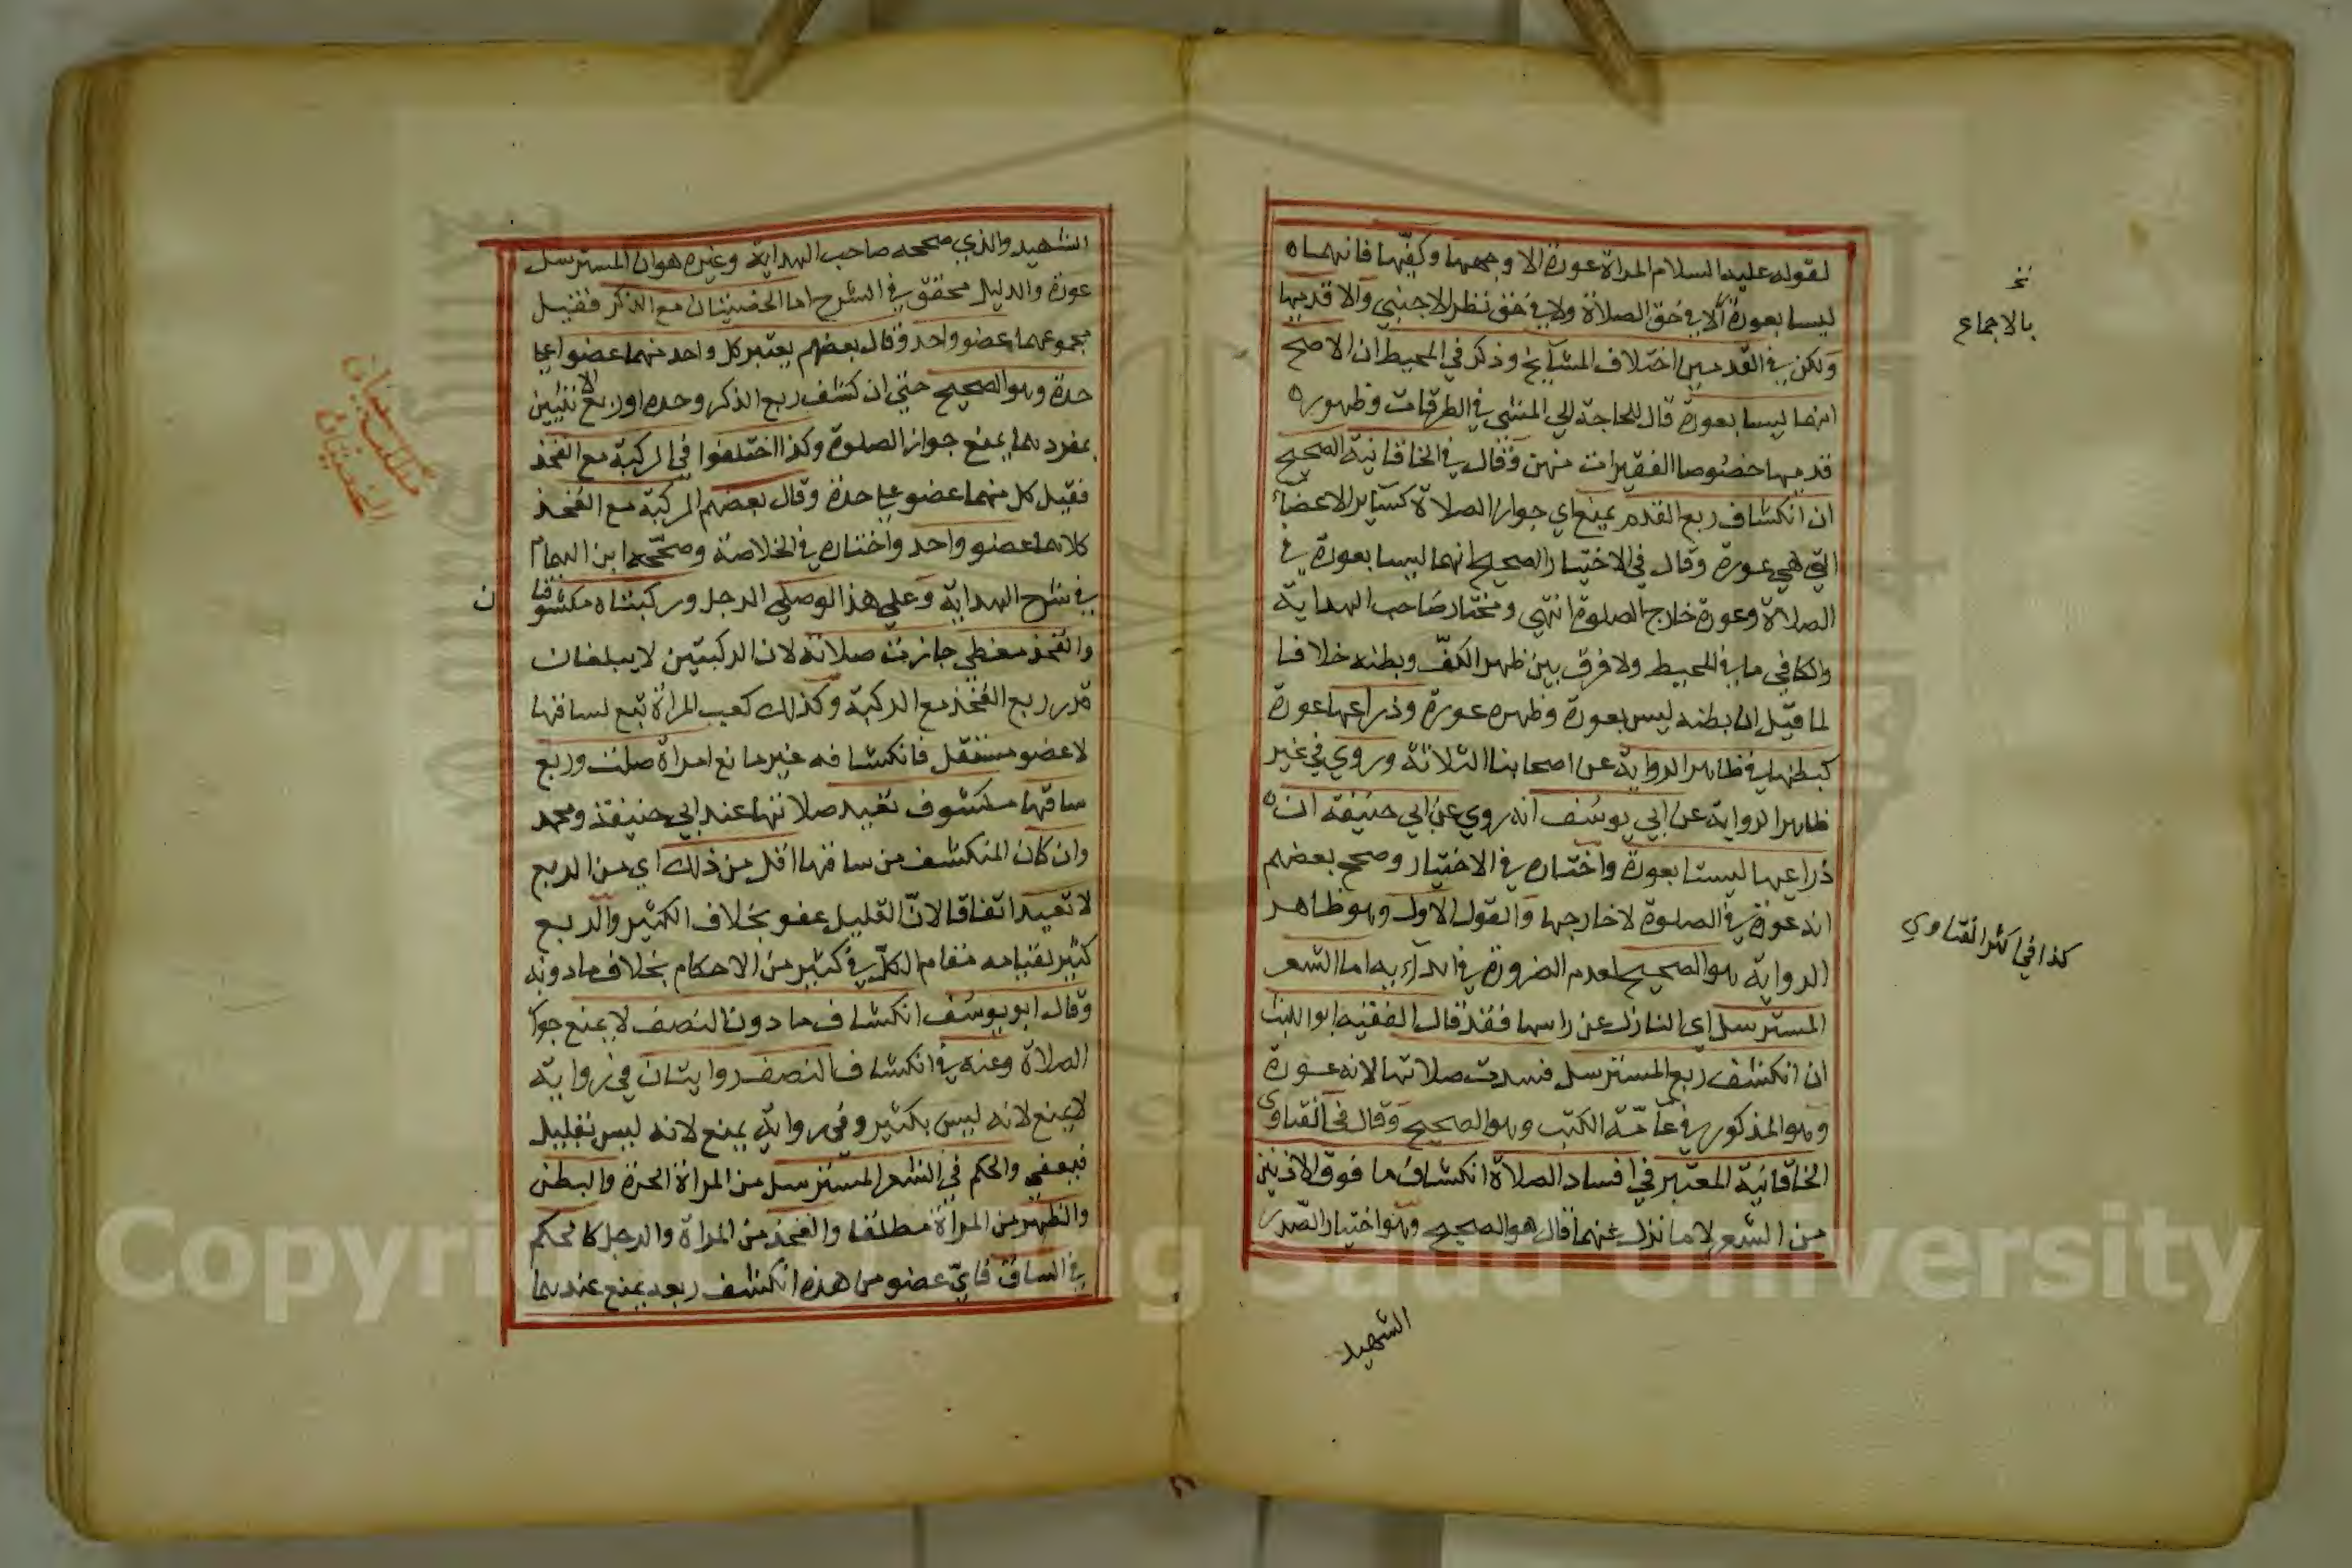 لقوله عليه السلام المراة عورة الا وجهها وكفّيها فانهما
ليسا بعورة لا في حق الصلاة ولا في حق نظر الاجنبي والا قدميها
ولكن في القدمين اختلاف المشايخ وذكر في المحيط ان الاصح
انهما ليسا بعورة قال للحاجة الي المشي في الطرقات وظهور
قدميها خصوصا الفقيرات منهن وقال في الخاقانية الصحيح
ان انكشاف ربع القدم يمنع اي جواز الصلاة كسائر الاعضاء
التي هي عورة وقال في الاختيار الصحيح انهما ليسا بعورة في
الصلاة وعورة خارج الصلوة انتهي ومختار صاحب الهداية
والكافي ما في المحيط ولا فرق بين ظهر الكفّ وبطنه خلافا
لما قيل ان بطنه ليس بعورة وظهره عورة وذراعها عورة
كبطنها في ظاهر الرواية عن اصحابنا الثلاثة وروي في غير
ظاهر الرواية عن ابي يوسف انه روي عن ابي حنيفة ان
ذراعيها ليستا بعورة واختاره في الاختيار وصحح بعضهم
انه عورة في الصلوة لا خارجها والقول الاول وهو ظاهر
الرواية هو الصحيح لعدم الضرورة في ابدائه اما الشعر
المسترسل اي النازل عن راسها فقد قال الفقيه ابو الليث
ان انكشف ربع المسترسل فسدت صلاتها لانه عورة
وهو المذكور في عامّة الكتب وهو الصحيح وقال في الفتاوى
الخاقانية المعتبر في افساد الصلاة انكشاف ما فوق الاذنين
من الشعر لا ما نزل عنهما قال هو الصحيح وهو اختيار الصدر
الشهيد
بالاجماع
كذا في اكثر الفتاوي
الشهيد والذي صححه صاحب الهداية وغيره هو ان المسترسل
عورة والدليل محقق في الشرح اما الخصيتان مع الذكر فقيل
مجموعهما عضو واحد وقال بعضهم يعتبر كل واحد منهما عضوا علي
حدة وهو الصحيح حتي ان كشف ربع الذكر وحده او ربع الانثيين
بمفردهما يمنع جواز الصلوة وكذا اختلفوا في الركبة مع الفخذ
فقيل كل منهما عضو علي حدة وقال بعضهم الركبة مع الفخذ
كلاهما عضو واحد واختاره في الخلاصة وصحّحه ابن الهمام
في شرح الهداية وعلي هذا لو صلي الرجل وركبتاه مكشوفتا
ن
والفخذ مغطي جازت صلاته لان الركبتين لا يبلغان
قدر ربع الفخذ مع الركبة وكذلك كعب المراة تبع لساقها
لا عضو مستقل فانكشافه غير مانع امراة صلت وربع
ساقها مكشوف تعيد صلاتها عند ابي حنيفة ومحمد
وان كان المنكشف من ساقها اقل من ذلك اي من الربع
لا تعيد اتفاقا لانّ القليل عفو بخلاف الكثير والربع
كثير لقيامه مقام الكلّ في كثير من الاحكام بخلاف ما دونه
وقال ابو يوسف انكشاف ما دون النصف لا يمنع جواز
الصلاة وعنه في انكشاف النصف روايتان في رواية
لا يمنع لانه ليس بكثير وفي رواية يمنع لانه ليس بقليل
فيعفي والحكم في الشعر المسترسل من المراة الحرة والبطن
والظهر من المراة مطلقا والفخذ من المراة والرجل كالحكم
في الساق فايّ عضو من هذه انكشف ربعه يمنع عندهما